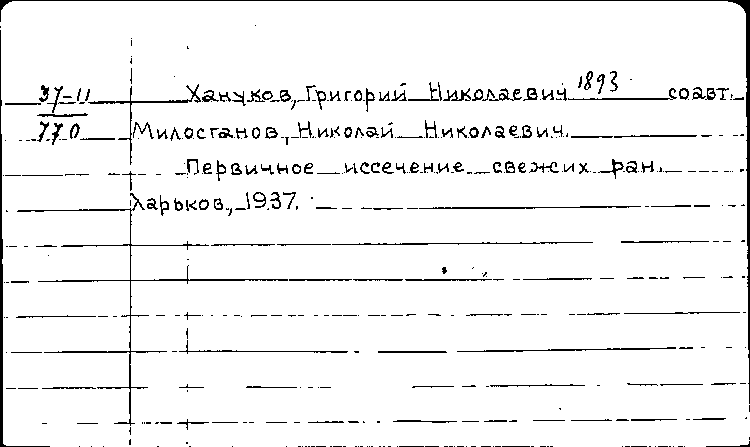 37-11 Хануков, Григорий Николаевич 1893 соавт.
770 Милостанов, Николай Николаевич.
Первичное иссечение свежих ран.
Харьков, 1937.